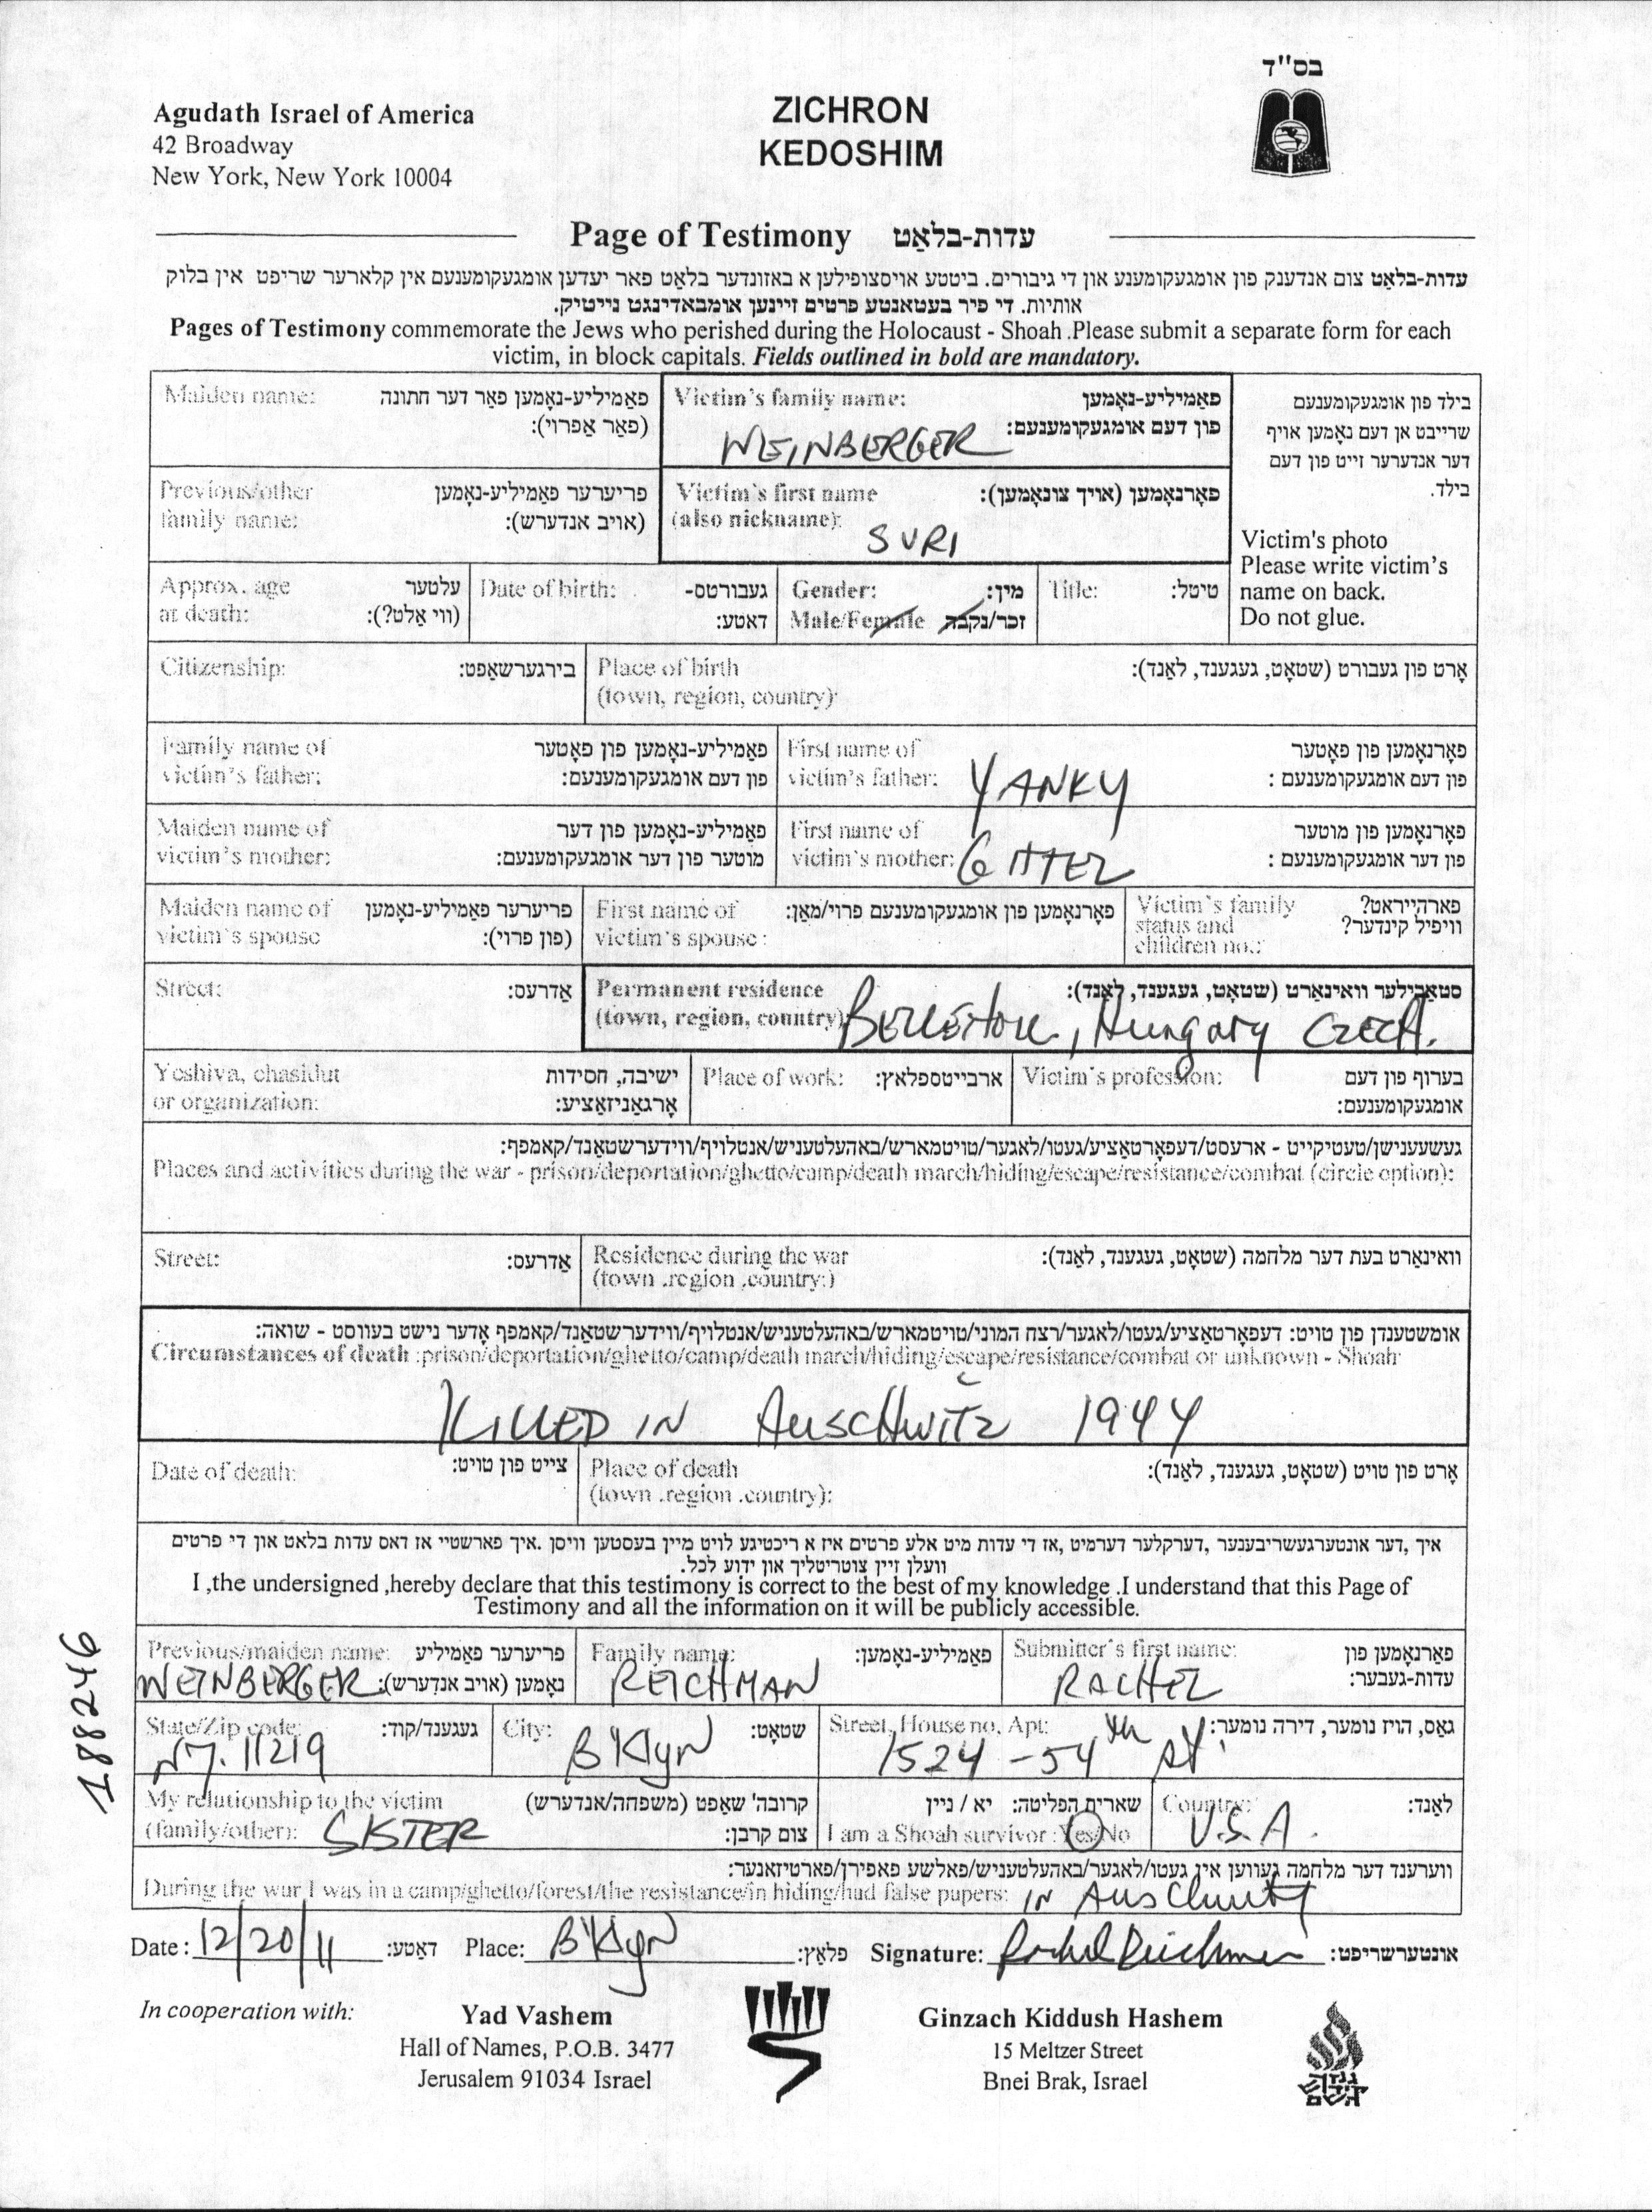 בס"ד
Agudath Israel of America
42 Broadway
New York, New York 10004
ZICHRON
KEDOSHIM
Page of Testimony עדות-בלאַט
עדות-בלאַט צום אנדענק פון אומגעקומענע און די גיבורים. ביטטע אויסצופילען א באזונדער בלאַט פאר יעדען אומגעקומענעם אין קלארער שריפט אין בלוק
אותיות. די פיר בעטאנטע פרטים זיינען אומבאדינגט נייטיק.
Pages of Testimony commemorate the Jews who perished during the Holocaust - Shoah .Please submit a separate form for each
victim, in block capitals. Fields outlined in bold are mandatory.
Maiden name: פאַמיליע-נאָמען פאַר דער חתונה
(פאַר אַפרוי):
Victim's family name: פאַמיליע-נאָמען
פון דעם אומגעקומענעם:
WEINBERGER
בילד פון אומגעקומענעם
שרייבט אן דעם נאָמען אויף
דער אנדערער זייט פון דעם
בילד.
Victim's photo
Please write victim's
name on back.
Do not glue.
Previous/other פריערער פאַמיליע-נאָמען
family name: (אויב אנדערש):
Victim's first name פאָרנאָמען (אויך צונאָמען):
(also nickname):
SURI
Approx. age עלטער
at death: (ווי אַלט?):
Date of birth: געבורטס-
דאטע:
Gender: מין:
Male/Female זכר/נקבה
Title: טיטל:
Citizenship: בירגערשאַפט:
Place of birth אָרט פון געבורט (שטאָט, געגענד, לאַנד):
(town, region, country):
Family name of פאַמיליע-נאָמען פון פאָטער
victim's father: פון דעם אומגעקומענעם:
First name of פאָרנאָמען פון פאָטער
victim's father: YANKY פון דעם אומגעקומענעם :
Maiden name of פאַמיליע-נאָמען פון דער
victim's mother: מוטער פון דער אומגעקומענעם:
First name of פאָרנאָמען פון מוטער
victim's mother: GITTEL פון דער אומגעקומענעם :
Maiden name of פריערער פאַמיליע-נאָמען
victim's spouse (פון פרוי):
First name of פאָרנאָמען פון אומגעקומענעם פרוי/מאַן:
victim's spouse :
Victim's family פארהייראט?
status and וויפיל קינדער?
children no.:
Street: אַדרעס:
Permanent residence סטאַבילער וואינאָרט (שטאָט, געגענד, לאַנד):
(town, region, country): Hungary CZECH.
Yeshiva, chasidut ישיבה, חסידות
or organization: אָרגאַניזאַציע:
Place of work: ארבייטספלאץ:
Victim's profession: בערוף פון דעם
אומגעקומענעם:
געשעענישן/טעטיקייט - ארעסט/דעפּאָרטאַציע/געטו/לאגער/טויטמארש/באהעלטעניש/אנטלויף/ווידערשטאַנד/קאמפף:
Places and activities during the war - prison/deportation/ghetto/camp/death march/hiding/escape/resistance/combat (circle option):
Street: אַדרעס:
Residence during the war וואינאָרט בעת דער מלחמה (שטאָט, געגענד, לאַנד):
(town .region .country:)
אומשטענדן פון טויט: דעפּאָרטאַציע/געטו/לאגער/רצח המוני/טויטמארש/באהעלטעניש/אנטלויף/ווידערשטאַנד/קאמפף אָדער נישט בעוווסט - שואה:
Circumstances of death :prison/deportation/ghetto/camp/death march/hiding/escape/resistance/combat or unknown - Shoah:
KILLED IN AUSCHWITZ 1944
Date of death: צייט פון טויט:
Place of death אָרט פון טויט (שטאָט, געגענד, לאַנד):
(town .region .country):
איך ,דער אונטערגעשריבענער ,דערקלער דערמיט ,אז די עדות מיט אלע פרטים איז א ריכטיגע לויט מיין בעסטען וויסן .איך פארשטיי אז דאס עדות בלאט און די פרטים
וועלן זיין צוטריטליך און ידוע לכל.
I ,the undersigned ,hereby declare that this testimony is correct to the best of my knowledge .I understand that this Page of
Testimony and all the information on it will be publicly accessible.
188246
Previous/maiden name: פריערער פאַמיליע
WEINBERGER נאָמען (אויב אנדערש):
Family name: פאַמיליע-נאָמען:
REICHMAN
Submitter's first name: פאָרנאָמען פון
RACHEL עדות-געבער:
State/Zip code: געגענד/קוד:
NY. 11219
City: שטאָט:
B'Klyn
Street, House no, Apt: גאַס, הויז נומער, דירה נומער:
1524 - 54th St.
My relationship to the victim קרובה' שאַפט (משפחה/אנדערש)
(family/other): SISTER צום קרבן:
שארית הפליטה: יא / ניין
I am a Shoah survivor :Yes/No
Country: לאַנד:
U.S.A.
ווערענד דער מלחמה געווען אין געטו/לאגער/באהעלטעניש/פאלשע פאפירן/פארטיזאנער:
During the war I was in a camp/ghetto/forest/the resistance/in hiding/had false papers: IN Auschwitz
Date : 12/20/11 דאַטע: Place: B'Klyn פלאַץ: Signature: Rachel Reichman אונטערשריפט:
In cooperation with:
Yad Vashem
Hall of Names, P.O.B. 3477
Jerusalem 91034 Israel
Ginzach Kiddush Hashem
15 Meltzer Street
Bnei Brak, Israel
גנזך
קידוש
השם